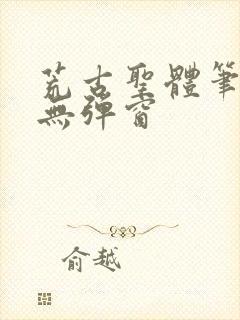 荒古聖體筆
無彈窗
俞越